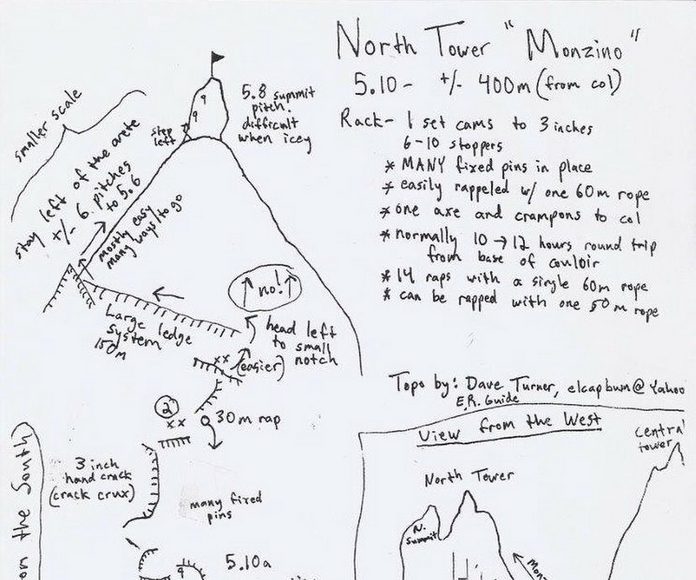 North Tower "Monzino"
5.10- +/- 400m (from col)
Rack- 1 set cams to 3 inches
6-10 stoppers
* MANY fixed pins in place
* easily rappeled w/ one 60m rope
* one axe and crampons to col
* normally 10→12 hours round trip
from base of couloir
* 14 raps with a single 60m rope
* can be rapped with one 50m rope
smaller scale
5.8 summit
pitch.
difficult
when icey
step
left
stay left of the arete
+/- 6 pitches
to 5.6
mostly easy
many ways to go
↑ no! ↑
Large ledge
system
150m
head left
to small
notch
xx
(easier)
2
xx
30m rap
3 inch
hand crack
(crack crux)
many fixed
pins
5.10a
on the South)
Topo by: Dave Turner, elcapbum@Yahoo
E.R. Guide
View from the West
Central
tower
North Tower
N.
Summit